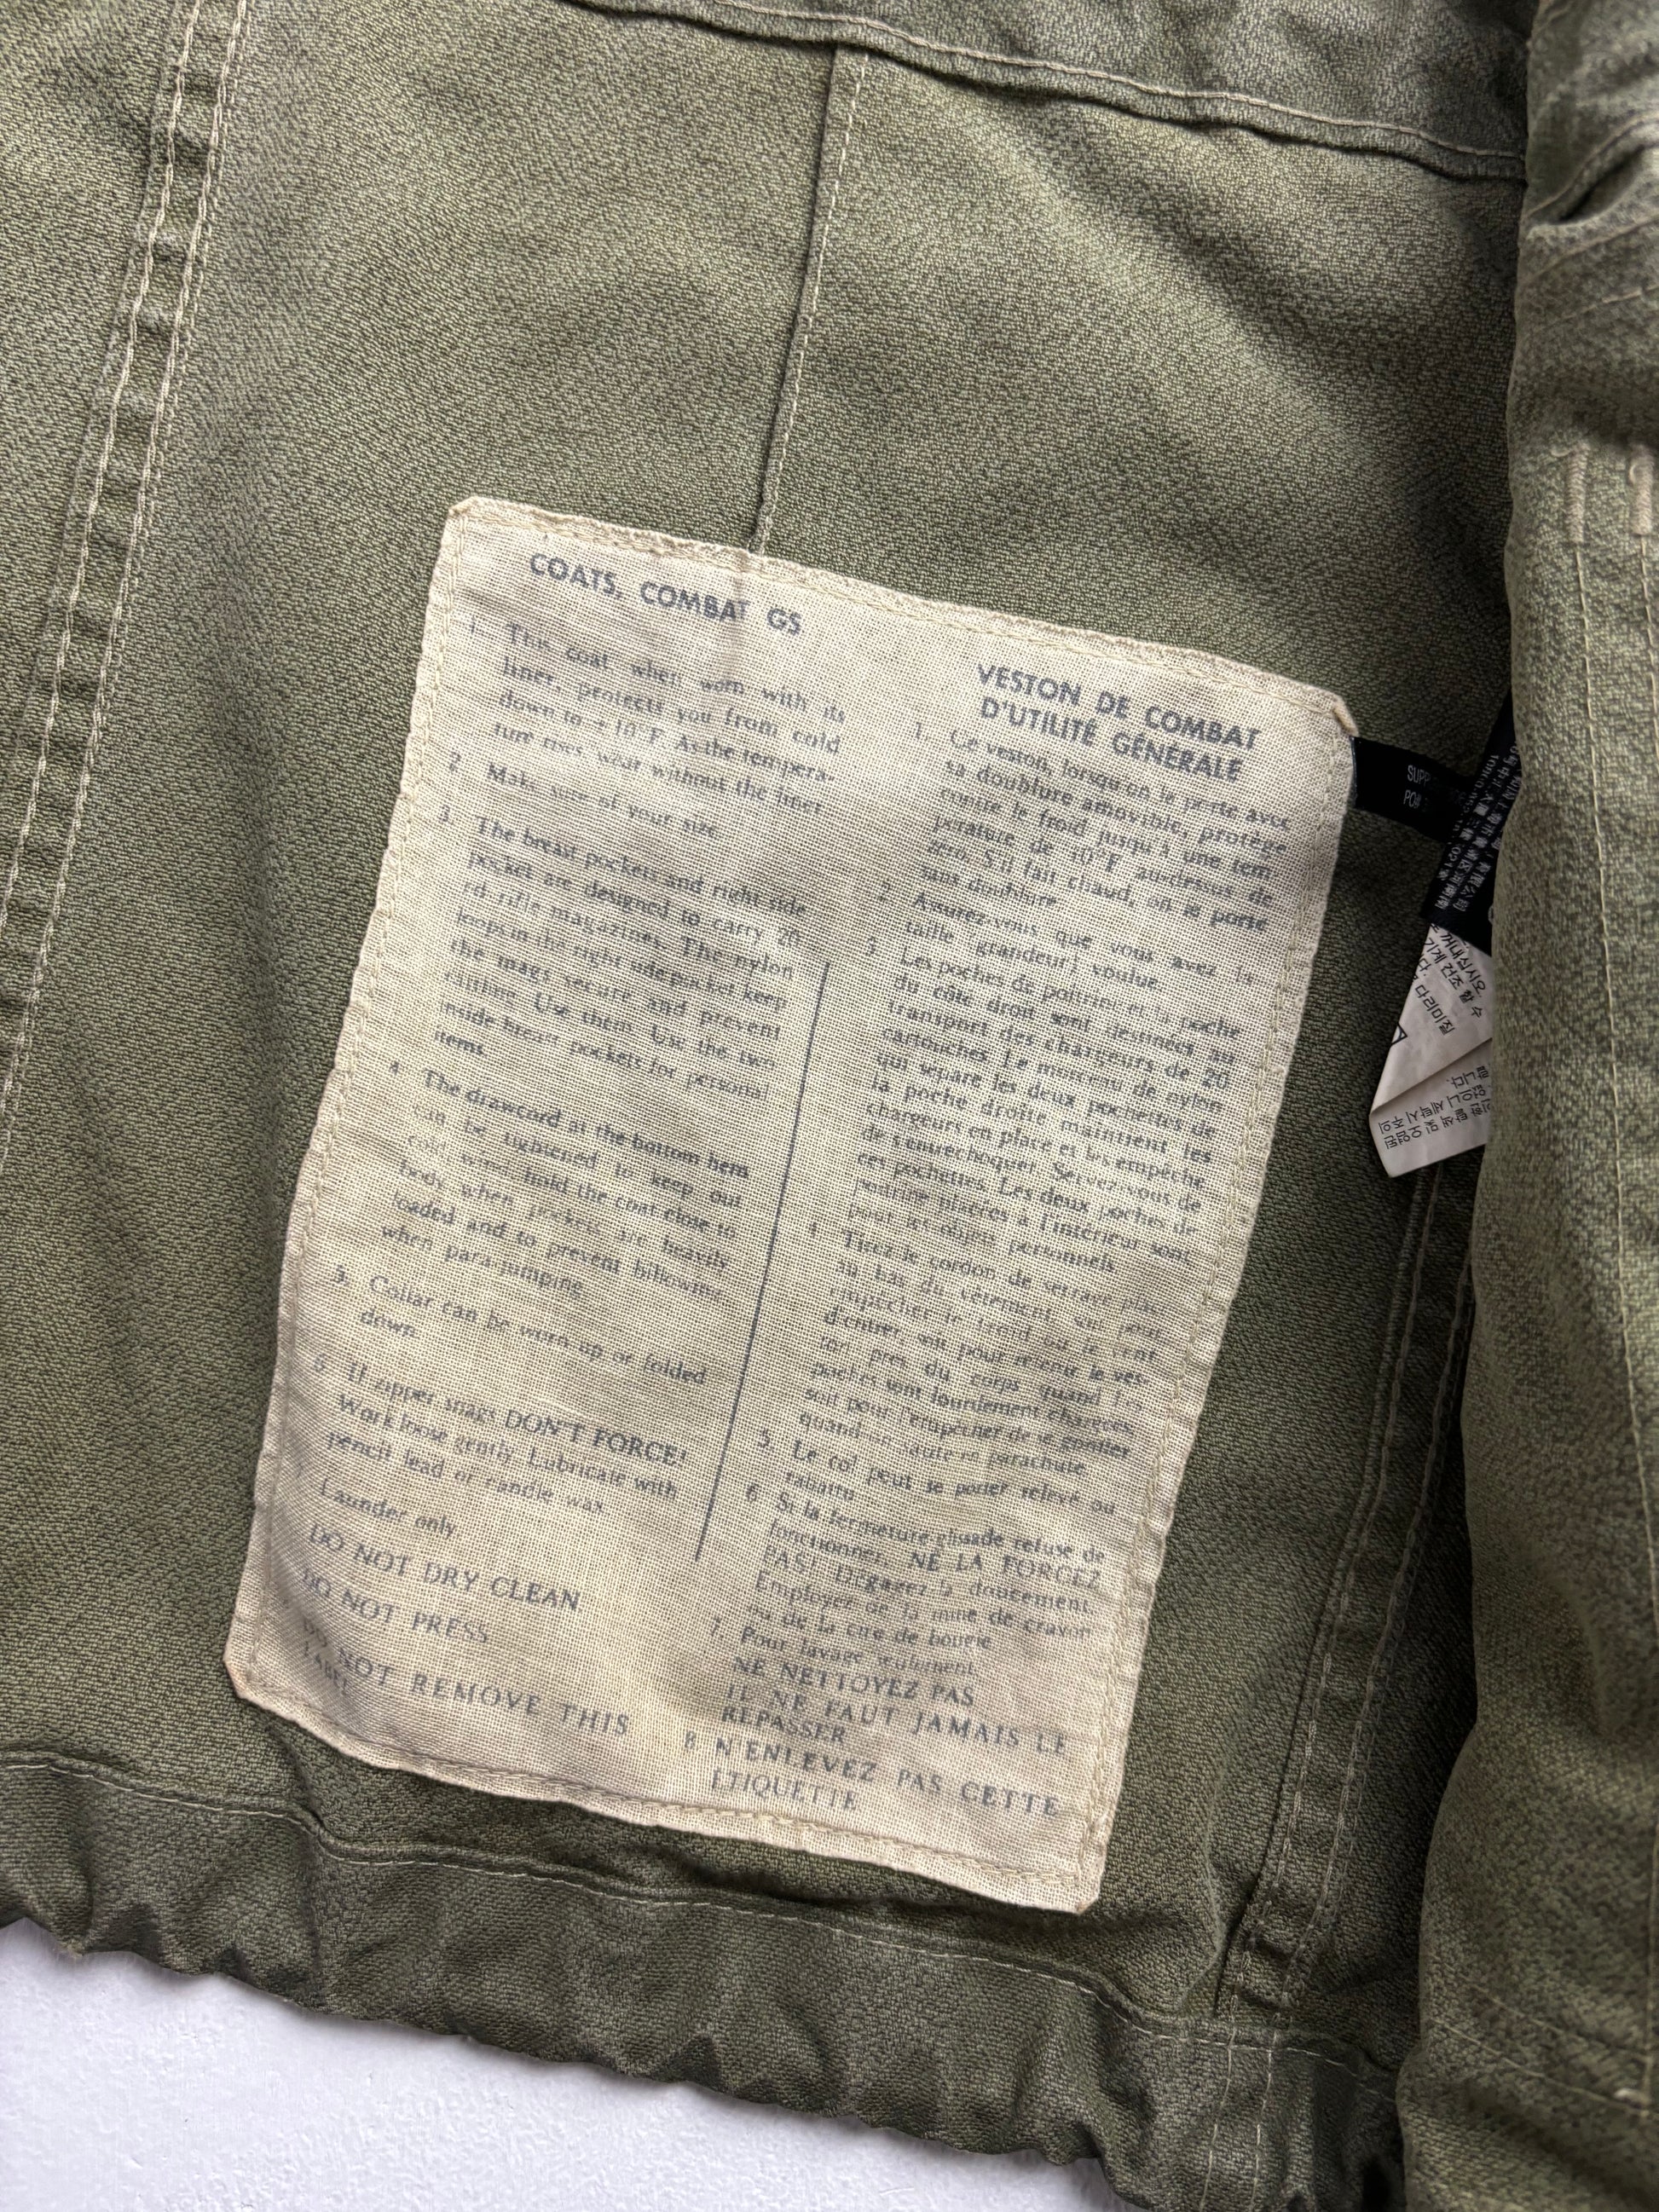 COATS, COMBAT GS
1. This coat when worn with its
liner, protects you from cold
down to + 10°F. As the tempera-
ture rises, wear without the liner.
2. Make sure of your size.
3. The breast pockets and right side
pocket are designed to carry 20
rd. rifle magazines. The nylon
loops in the right side pocket keep
the mags secure and prevent
rattling. Use them. Use the two
inside breast pockets for personal
items.
4. The drawcord at the bottom hem
can be tightened to keep out
cold wind, hold the coat close to
body when pockets are heavily
loaded and to prevent billowing
when para-jumping
5. Collar can be worn up or folded
down.
6. If zipper snags DON'T FORCE!
Work loose gently. Lubricate with
pencil lead or candle wax.
7. Launder only
DO NOT DRY CLEAN.
DO NOT PRESS
DO NOT REMOVE THIS
LABEL
VESTON DE COMBAT
D'UTILITÉ GÉNÉRALE
1. Ce veston, lorsqu'on le porte avec
sa doublure amovible, protège
contre le froid jusqu'à une tem
pérature de 10°F au-dessus de
zéro. S'il fait chaud, on le porte
sans doublure.
2. Assurez-vous que vous avez la
taille (grandeur) voulue.
3. Les poches de poitrine et la poche
du côté droit sont destinées au
transport des chargeurs de 20
cartouches. Le morceau de nylon
qui sépare les deux pochettes de
la poche droite maintient les
chargeurs en place et les empêche
de s'entrechoquer. Servez-vous de
ces pochettes. Les deux poches de
poitrine placées à l'intérieur sont
pour les objets personnels.
4. Tirez le cordon de serrage placé
au bas du vêtement, soit pour
empêcher le froid ou le vent
d'entrer, soit pour retenir le ves-
ton près du corps quand les
poches sont lourdement chargées,
soit pour l'empêcher de se gonfler
quand on saute en parachute.
5. Le col peut se porter relevé ou
rabattu.
6. Si la fermeture glissade refuse de
fonctionner, NE LA FORCEZ
PAS! Dégagez-la doucement.
Employer de la mine de crayon
ou de la cire de bougie
7. Pour lavage seulement
NE NETTOYEZ PAS
IL NE FAUT JAMAIS LE
REPASSER
8 N'ENLEVEZ PAS CETTE
ETIQUETTE
SUPP
PO#
꺼내십시오
기계 건조 할 수
다. 다리미질